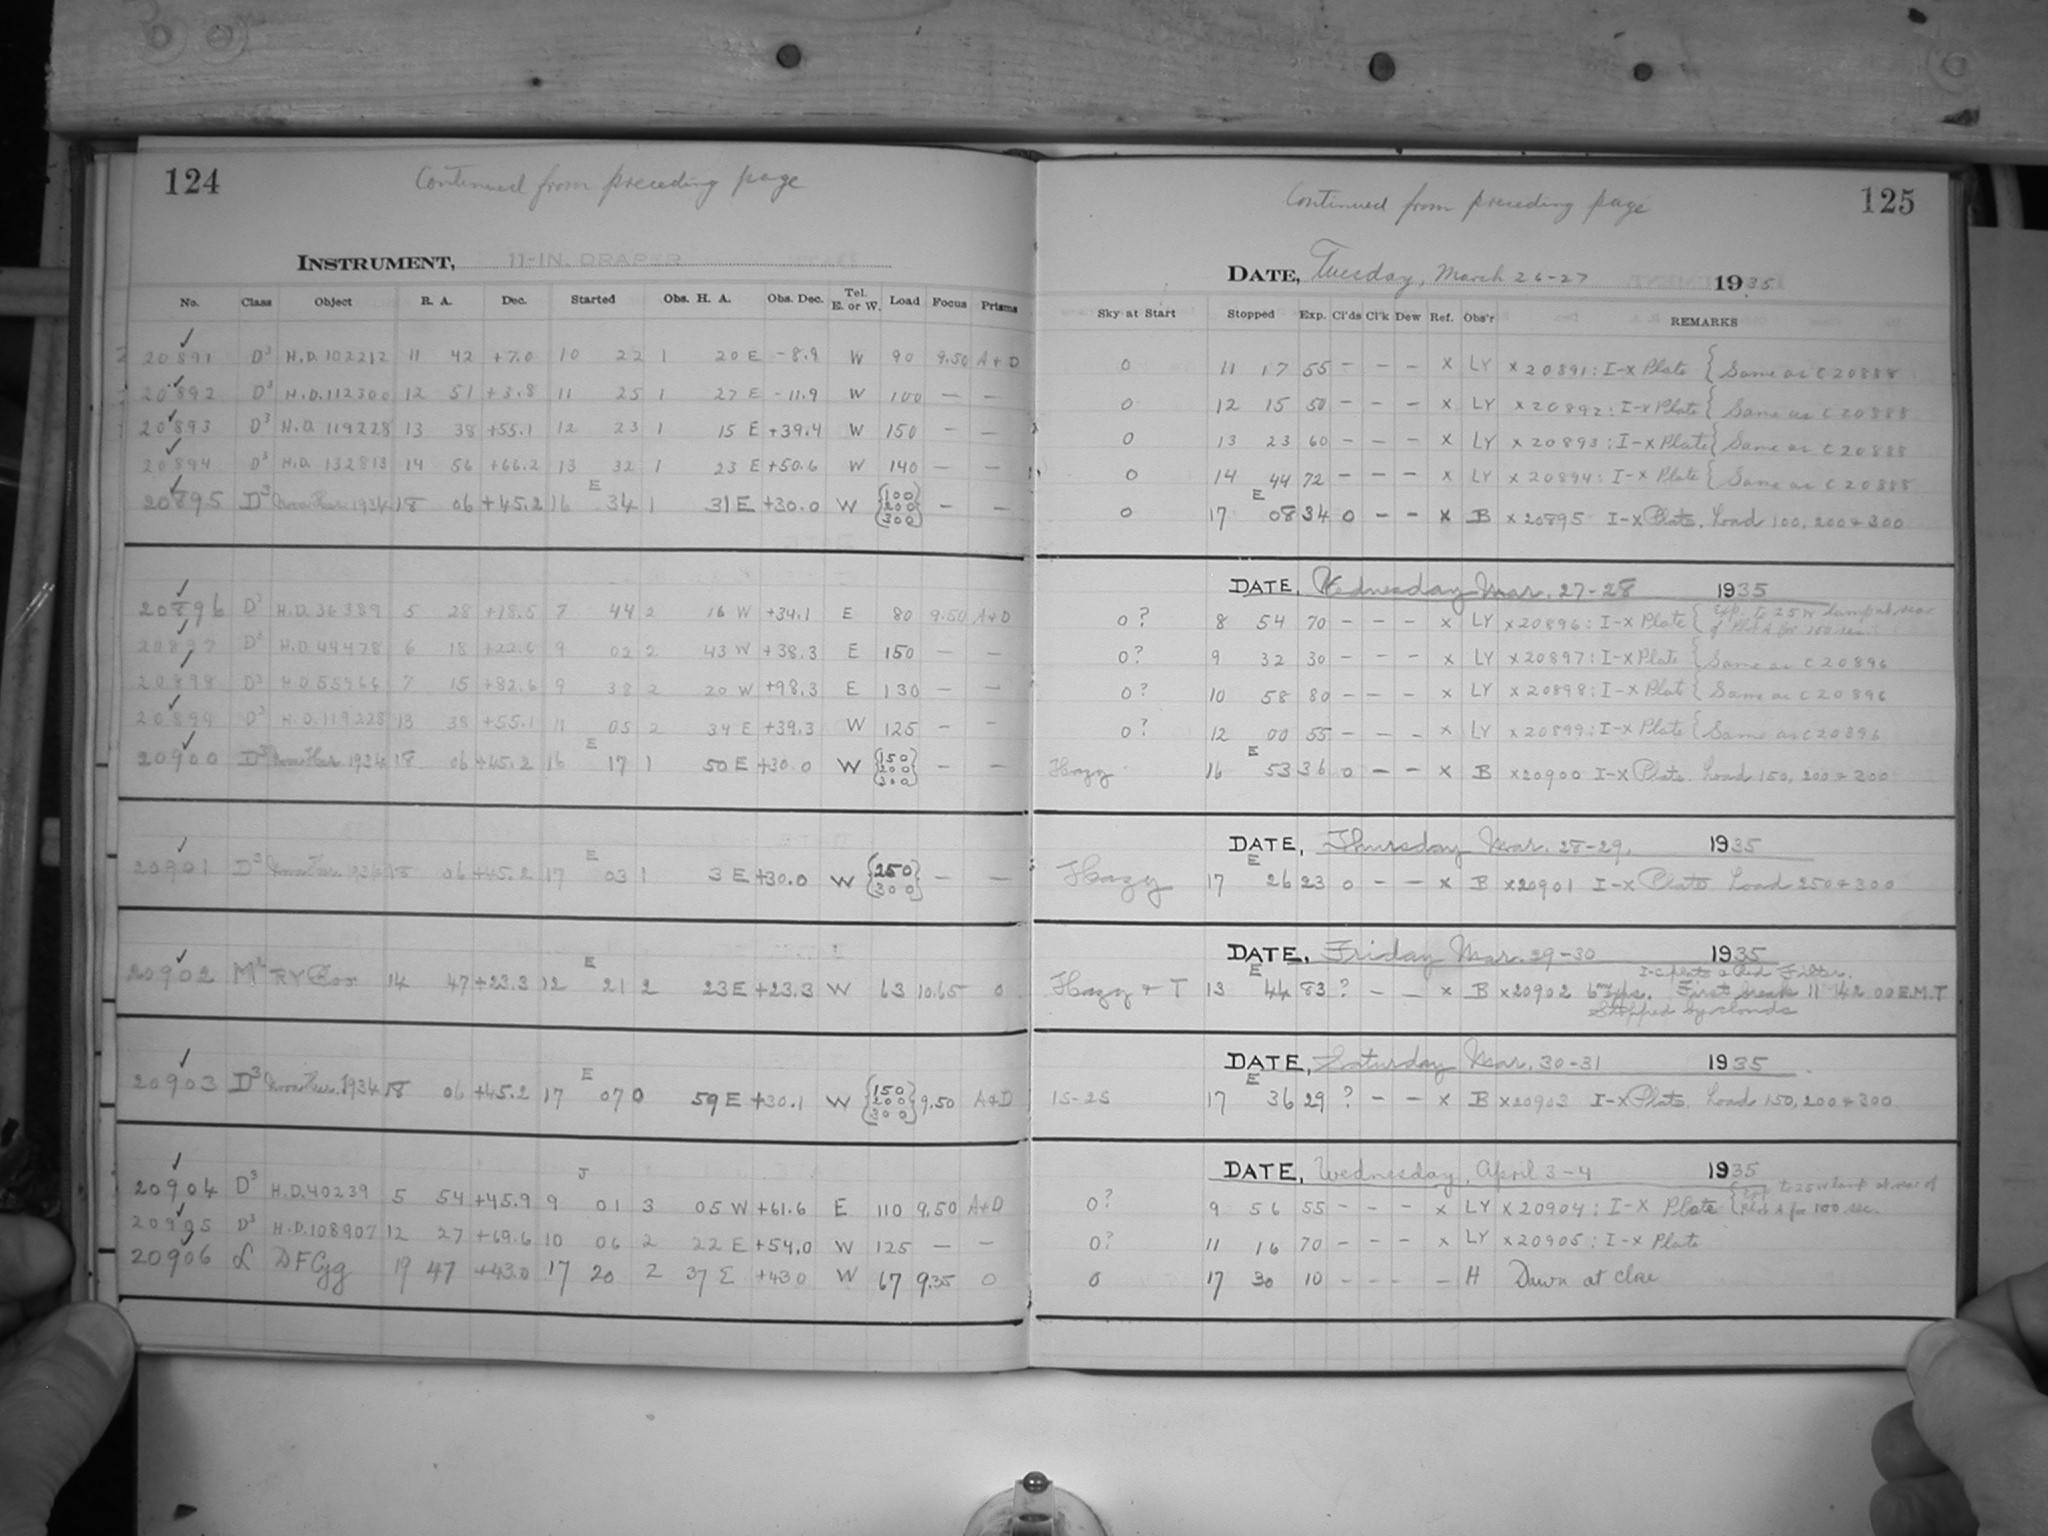 124
Continued from preceding page
INSTRUMENT, 11-IN. DRAPER
No. Class Object R. A. Dec. Started Obs. H. A. Obs. Dec. Tel. E. or W. Load Focus Prisms
20891 D3 H.D. 102212 11 42 +7.0 10 22 1 20 E -8.9 W 90 9.50 A+D
20892 D3 H.D. 112300 12 51 +3.8 11 25 1 27 E -11.9 W 100 — —
20893 D3 H.D. 119228 13 38 +55.1 12 23 1 15 E +39.4 W 150 — —
20894 D3 H.D. 132813 14 56 +66.2 13 32 1 23 E +50.6 W 140 — —
20895 D3 Nova Her. 1934 18 06 +45.2 16 E 34 1 31 E +30.0 W {100 200 300} — —
20896 D3 H.D. 36389 5 28 +18.5 7 44 2 16 W +34.1 E 80 9.50 A+D
20897 D3 H.D. 44478 6 18 +22.6 9 02 2 43 W +38.3 E 150 — —
20898 D3 H.D. 55966 7 15 +82.6 9 38 2 20 W +98.3 E 130 — —
20899 D3 H.D. 119228 13 38 +55.1 11 05 2 34 E +39.3 W 125 — —
20900 D3 Nova Her. 1934 18 06 +45.2 16 E 17 1 50 E +30.0 W {150 200 300} — —
20901 D3 Nova Her. 1934 18 06 +45.2 17 E 03 1 3 E +30.0 W {250 300} — —
20902 RY Boo 14 47 +23.3 12 E 21 2 23 E +23.3 W 63 10.65 0
20903 D3 Nova Her. 1934 18 06 +45.2 17 E 07 0 59 E +30.1 W {150 200 300} 9.50 A+D
20904 D3 H.D. 40239 5 54 +45.9 9 J 01 3 05 W +61.6 E 110 9.50 A+D
20905 D3 H.D. 108907 12 27 +69.6 10 06 2 22 E +54.0 W 125 — —
20906 L DF Cyg 19 47 +43.0 17 20 2 37 E +43.0 W 67 9.35 0
Continued from preceding page
125
DATE, Tuesday, March 26-27 1935
Sky at Start Stopped Exp. Cl'ds Cl'k Dew Ref. Obs'r REMARKS
0 11 17 55 — — — x LY x 20891: I-x Plate { Same as C 20888
0 12 15 50 — — — x LY x 20892: I-x Plate { Same as C 20888
0 13 23 60 — — — x LY x 20893: I-x Plate { Same as C 20888
0 14 44 72 — — — x LY x 20894: I-x Plate { Same as C 20888
0 17 E 08 34 0 — — x B x 20895 I-x Plate. Load 100, 200 + 300
DATE, Wednesday Mar. 27-28 1935
0? 8 54 70 — — — x LY x 20896: I-x Plate { Exp. to 25 w lamp at rear of Plate A for 100 sec.
0? 9 32 30 — — — x LY x 20897: I-x Plate { Same as C 20896
0? 10 58 80 — — — x LY x 20898: I-x Plate { Same as C 20896
0? 12 00 55 — — — x LY x 20899: I-x Plate { Same as C 20896
Hazy 16 E 53 36 0 — — x B x 20900 I-x Plate. Load 150, 200 + 300
DATE, Thursday Mar. 28-29, 1935
Hazy 17 E 26 23 0 — — x B x 20901 I-x Plate Load 250 + 300
DATE, Friday Mar. 29-30 1935
I-c plate & Red Filter.
Hazy + T 13 E 44 83 ? — — x B x 20902 First break 11 42 00 E.M.T
Stopped by clouds
DATE, Saturday Mar. 30-31 1935
15-25 17 E 36 29 ? — — x B x 20903 I-x Plate. Load 150, 200 + 300
DATE, Wednesday, April 3-4 1935
0? 9 56 55 — — — x LY x 20904: I-X Plate { Exp. to 25 w lamp at rear of Plate A for 100 sec.
0? 11 16 70 — — — x LY x 20905: I-x Plate
0 17 30 10 — — — — H Dawn at close